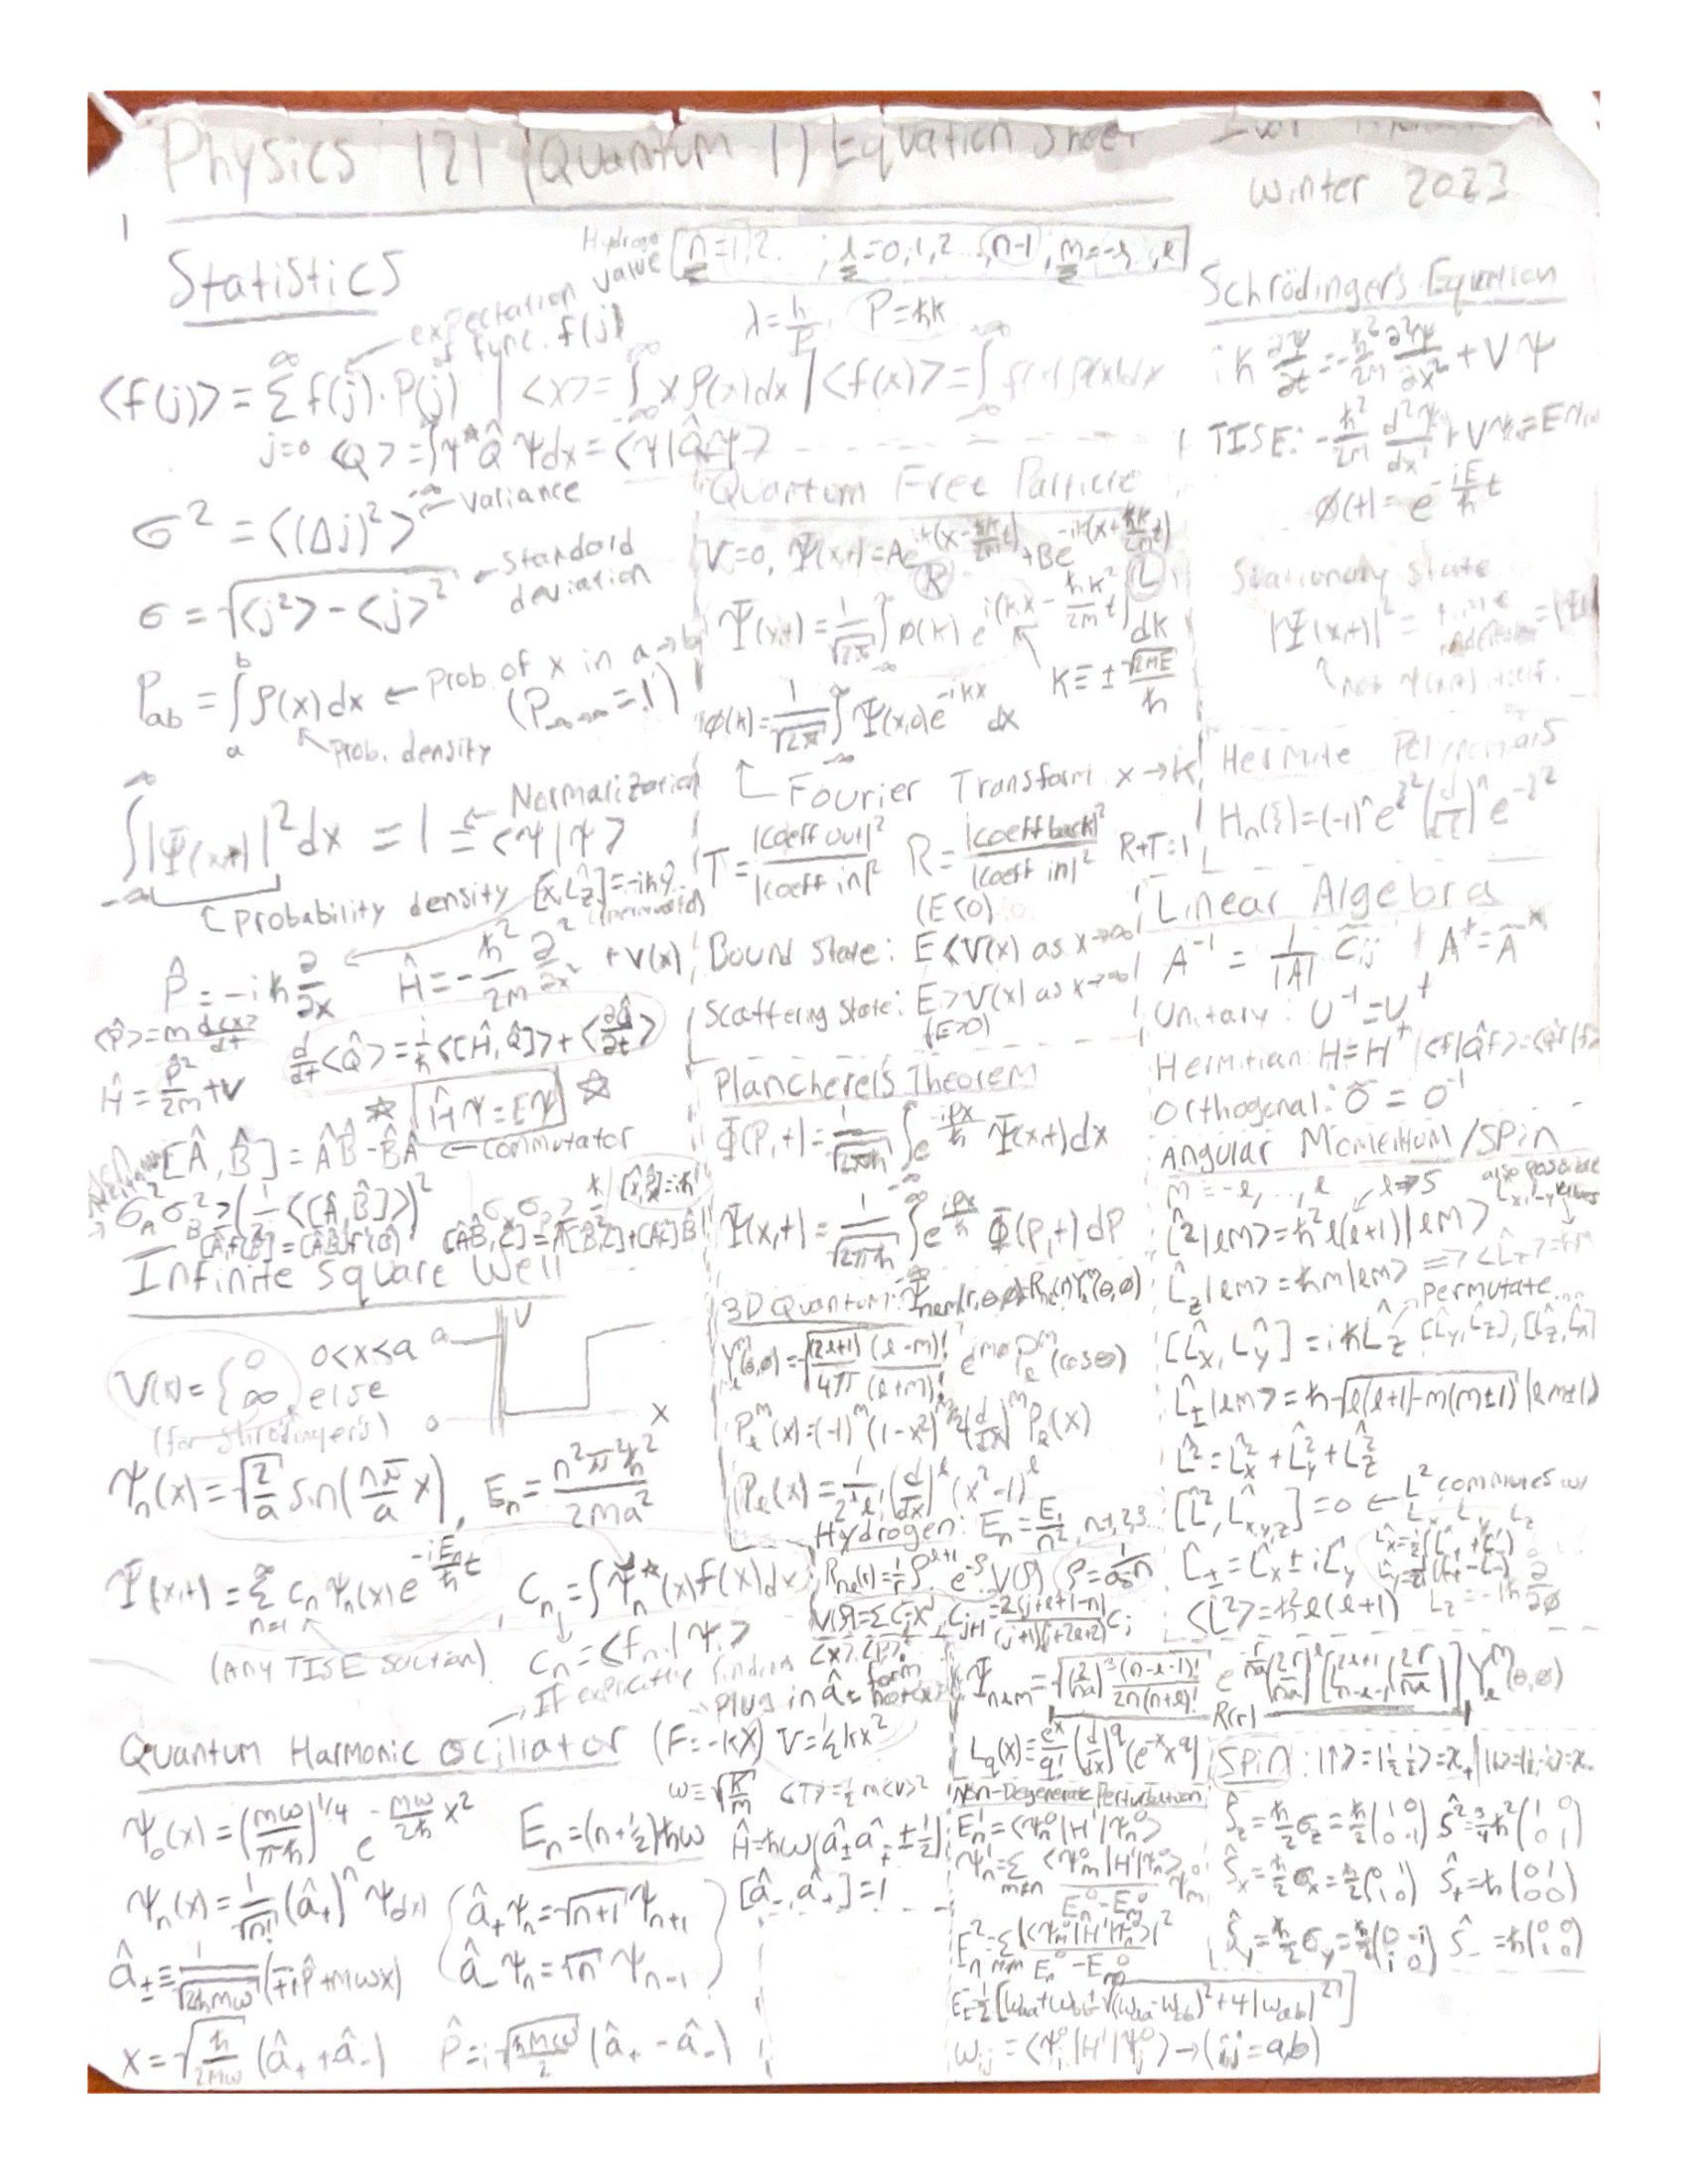 Physics 121 (Quantum 1) Equation Sheet
Winter 2023
1
Statistics
value [n=1,2.. ; l=0,1,2...,n-1 ; m=-l, ,l]
λ=h/p, P=ħk
expectation of func. f(j)
<f(j)> = Σ_{j=0}^∞ f(j)·P(j) | <x> = ∫_{-∞}^∞ x ρ(x)dx | <f(x)> = ∫_{-∞}^∞ f(x)ρ(x)dx
<Q> = ∫Ψ*Q̂Ψdx = <Ψ|Q̂Ψ>
σ² = <(Δj)²> ← variance
σ = √(<j²> - <j>²) ← standard deviation
P_ab = ∫_a^b ρ(x)dx ← prob. of x in a→b
(P_{-∞→∞} = 1)
prob. density
∫_{-∞}^∞ |Ψ(x,t)|² dx = 1 = <Ψ|Ψ> ← Normalization
probability density
[x,L̂z] = -iħŷ
P̂ = -iħ ∂/∂x Ĥ = -ħ²/2m ∂²/∂x² + V(x)
<P̂> = m d<x>/dt d/dt<Q̂> = i/ħ <[Ĥ,Q̂]> + <∂Q̂/∂t>
Ĥ = P̂²/2m + V ☆ [Ĥψ = Eψ] ☆
[Â,B̂] = ÂB̂ - B̂Â ← commutator
σ_A² σ_B² ≥ (1/2i <[Â,B̂]>)² σ_x σ_p ≥ ħ/2 [x̂,p̂] = iħ
[Â,f(B̂)] = [Â,B̂]f'(B̂) [ÂB̂,Ĉ] = Â[B̂,Ĉ]+[Â,Ĉ]B̂
Infinite Square Well
V(x) = { 0 0<x<a
∞, else
V
x
ψ_n(x) = √(2/a) sin(nπ/a x), E_n = n²π²ħ²/2ma²
Ψ(x,t) = Σ_{n=1}^∞ c_n ψ_n(x) e^{-iE_n t/ħ}, c_n = ∫ψ_n*(x)f(x)dx
(Any TISE solution) c_n = <f_n|Ψ>
If explicitly finding <x>, <p>, plug in â± form
Quantum Harmonic Ociliator (F=-kx) V=½kx²
ω=√(k/m) <T>=½m<v>²
ψ_0(x) = (mω/πħ)^{1/4} e^{-mω/2ħ x²} E_n=(n+½)ħω Ĥ=ħω(â±â∓ ± ½)
ψ_n(x) = 1/√n! (â+)^n ψ_0(x) { â+ψ_n=√(n+1) ψ_{n+1} [â-,â+]=1
â± ≡ 1/√(2ħmω) (∓ip̂+mωx) â-ψ_n=√n ψ_{n-1} }
x=√(ħ/2mω) (â+ + â-) P̂=i√(ħmω/2) (â+ - â-)
Quantum Free Particle
V=0, Ψ(x,t)=Ae^{ik(x-ħk/2m t)}+Be^{-ik(x+ħk/2m t)}
R L
Ψ(x,t) = 1/√2π ∫_{-∞}^∞ φ(k) e^{i(kx - ħk²/2m t)} dk
k ≡ ± √(2mE)/ħ
φ(k) = 1/√2π ∫_{-∞}^∞ Ψ(x,0)e^{-ikx} dx
Fourier Transform x→k
T = |coeff out|²/|coeff in|² R = |coeff back|²/|coeff in|² R+T=1
(E<0)
Bound State: E<V(x) as x→∞
Scattering State: E>V(x) as x→∞
(E>0)
Plancherel's Theorem
Φ(P,t) = 1/√2πħ ∫_{-∞}^∞ e^{-ipx/ħ} Ψ(x,t)dx
Ψ(x,t) = 1/√2πħ ∫_{-∞}^∞ e^{ipx/ħ} Φ(P,t)dP
3D Quantum: Ψ_nlm(r,θ,φ)=R_nl(r)Y_l^m(θ,φ)
Y_l^m(θ,φ) = √((2l+1)/4π (l-m)!/(l+m)!) e^{imφ} P_l^m(cosθ)
P_l^m(x) = (-1)^m (1-x²)^{m/2} (d/dx)^m P_l(x)
P_l(x) = 1/(2^l l!) (d/dx)^l (x²-1)^l
Hydrogen: E_n = E_1/n², n=1,2,3..
R_nl(r)=1/r ρ^{l+1} e^{-ρ} V(ρ) ρ=r/an
V(ρ)=Σ C_j ρ^j, C_{j+1} = 2(j+l+1-n)/((j+1)(j+2l+2)) C_j
Ψ_nlm = √((2/na)³ (n-l-1)!/2n(n+l)!) e^{-r/na} (2r/na)^l [L_{n-l-1}^{2l+1}(2r/na)] Y_l^m(θ,φ)
R(r)
L_q(x) = e^x/q! (d/dx)^q (e^{-x}x^q)
Non-Degenerate Perturbation
E_n¹ = <ψ_n⁰|H'|ψ_n⁰>
ψ_n¹ = Σ_{m≠n} <ψ_m⁰|H'|ψ_n⁰>/(E_n⁰-E_m⁰) ψ_m⁰
E_n² = Σ_{m≠n} |<ψ_m⁰|H'|ψ_n⁰>|²/(E_n⁰-E_m⁰)
E±=½[W_aa+W_bb±√((W_aa-W_bb)²+4|W_ab|²)]
W_ij = <ψ_i⁰|H'|ψ_j⁰> → (i,j=a,b)
Schrödinger's Equation
iħ ∂Ψ/∂t = -ħ²/2m ∂²Ψ/∂x² + VΨ
TISE: -ħ²/2m d²ψ/dx² + Vψ = Eψ
φ(t) = e^{-iE/ħ t}
Stationary State
|Ψ(x,t)|² = time
not Ψ(x,t) itself.
Hermite Polynomials
H_n(ξ) = (-1)^n e^{ξ²} (d/dξ)^n e^{-ξ²}
Linear Algebra
A⁻¹ = 1/|A| C̃_ij A⁺ = Ã*
Unitary: U⁻¹=U⁺
Hermitian: H=H⁺ <f|Q̂f>=<Q̂f|f>
Orthogonal: Õ = O⁻¹
Angular Momentum/Spin
m = -l,...,l l→s also possible L_x, L_y values
L̂²|lm> = ħ²l(l+1)|lm>
L̂z|lm> = ħm|lm> ⇒ <L̂z>=ħm
permutate...
[L̂x,L̂y] = iħL̂z [L̂y,L̂z],[L̂z,L̂x]
L̂±|lm> = ħ√(l(l+1)-m(m±1)) |l m±1>
L̂² = L̂x² + L̂y² + L̂z²
[L̂²,L̂x,y,z] = 0 ← L² commutes w/ Lx, Ly, Lz
L̂± = L̂x ± iL̂y L̂x=½(L̂+ + L̂-)
<L²>=ħ²l(l+1) Lz = -iħ ∂/∂φ
Spin: |↑>=|½ ½>=χ+ |↓>=|½ -½>=χ-
Ŝz=ħ/2 σz=ħ/2(1 0 0 -1) Ŝ²=¾ħ²(1 0 0 1)
Ŝx=ħ/2 σx=ħ/2(0 1 1 0) Ŝ+=ħ(0 1 0 0)
Ŝy=ħ/2 σy=ħ/2(0 -i i 0) Ŝ- =ħ(0 0 1 0)